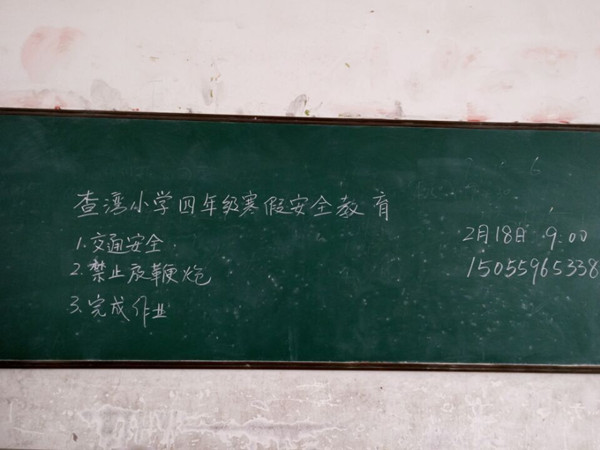 查湾小学四年级寒假安全教育
1.交通安全.
2.禁止放鞭炮
3.完成作业
2月18日 9.00
15055965338